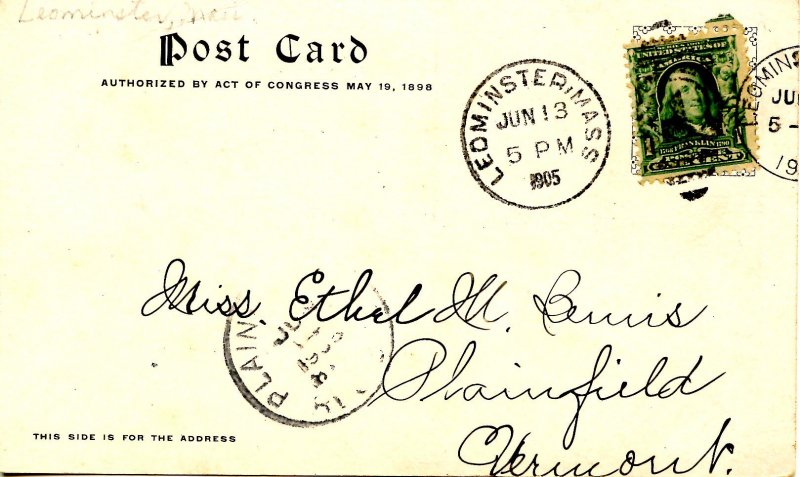 Leominster, Mass.
Post Card
AUTHORIZED BY ACT OF CONGRESS MAY 19, 1898
LEOMINSTER, MASS
JUN 13
5 PM
1905
UNITED STATES OF
AMERICA
FRANKLIN
LEOMINS
JU
5 -
19
Miss. Ethel M. Bemis
Plainfield
Vermont.
PLAIN
THIS SIDE IS FOR THE ADDRESS